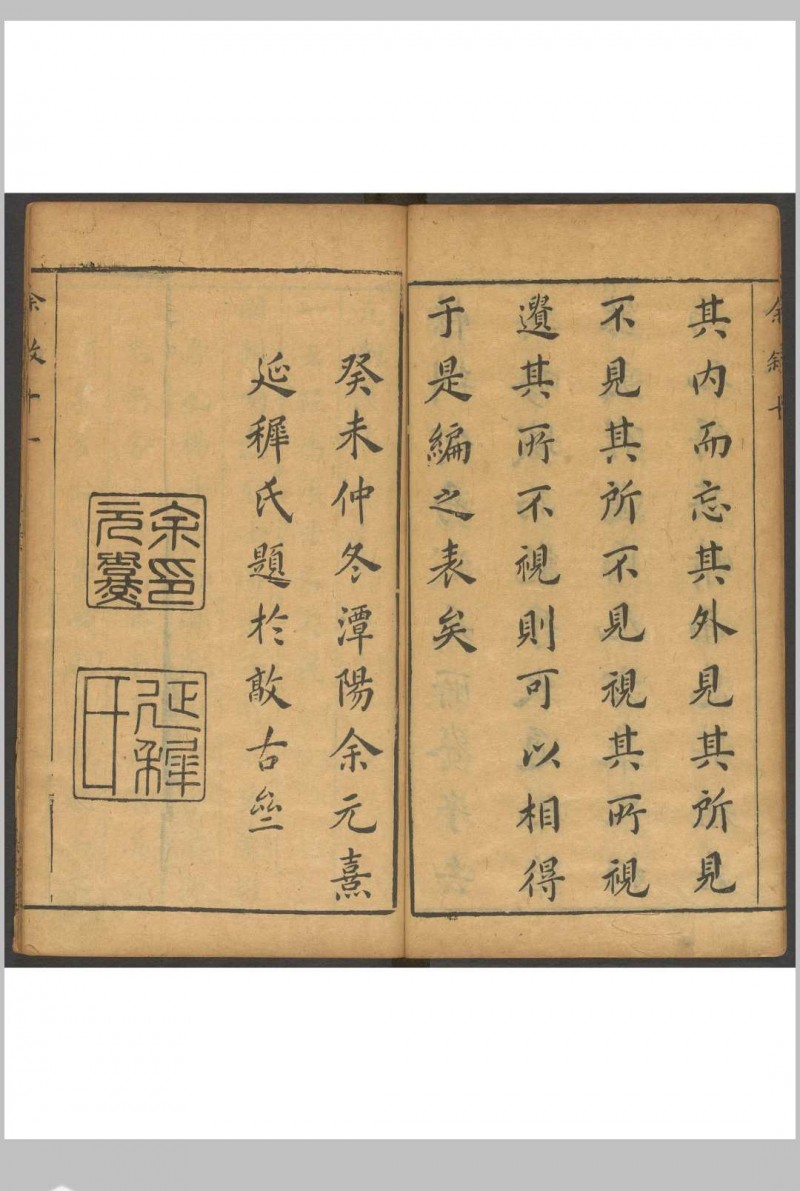 其内而忘其外見其所見
不見其所不見視其所視
遺其所不視則可以相得
于是編之表矣
癸未仲冬潭陽余元熹
延穉氏題於敲古
余印
元熹
延穉
氏
余敘十
余敘十一